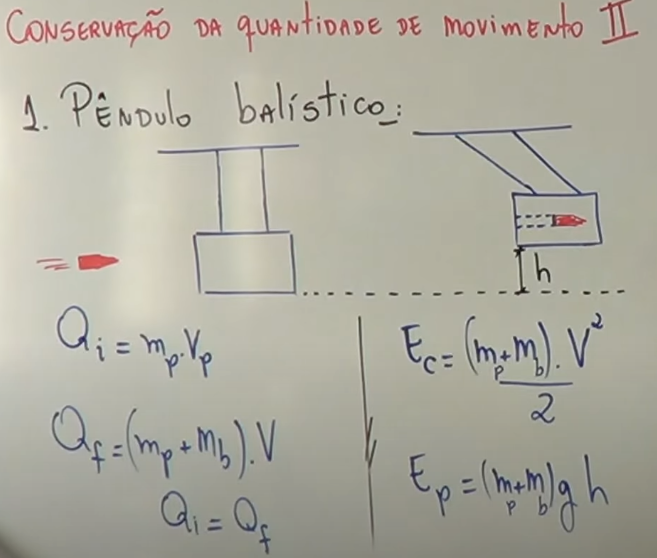 CONSERVAÇÃO DA QUANTIDADE DE MOVIMENTO II
1. PÊNDULO BALÍSTICO:
h
Qi = mp.Vp
Qf = (mp + mb).V
Qi = Qf
Ec = (mp + mb).V²
2
Ep = (mp + mb)gh